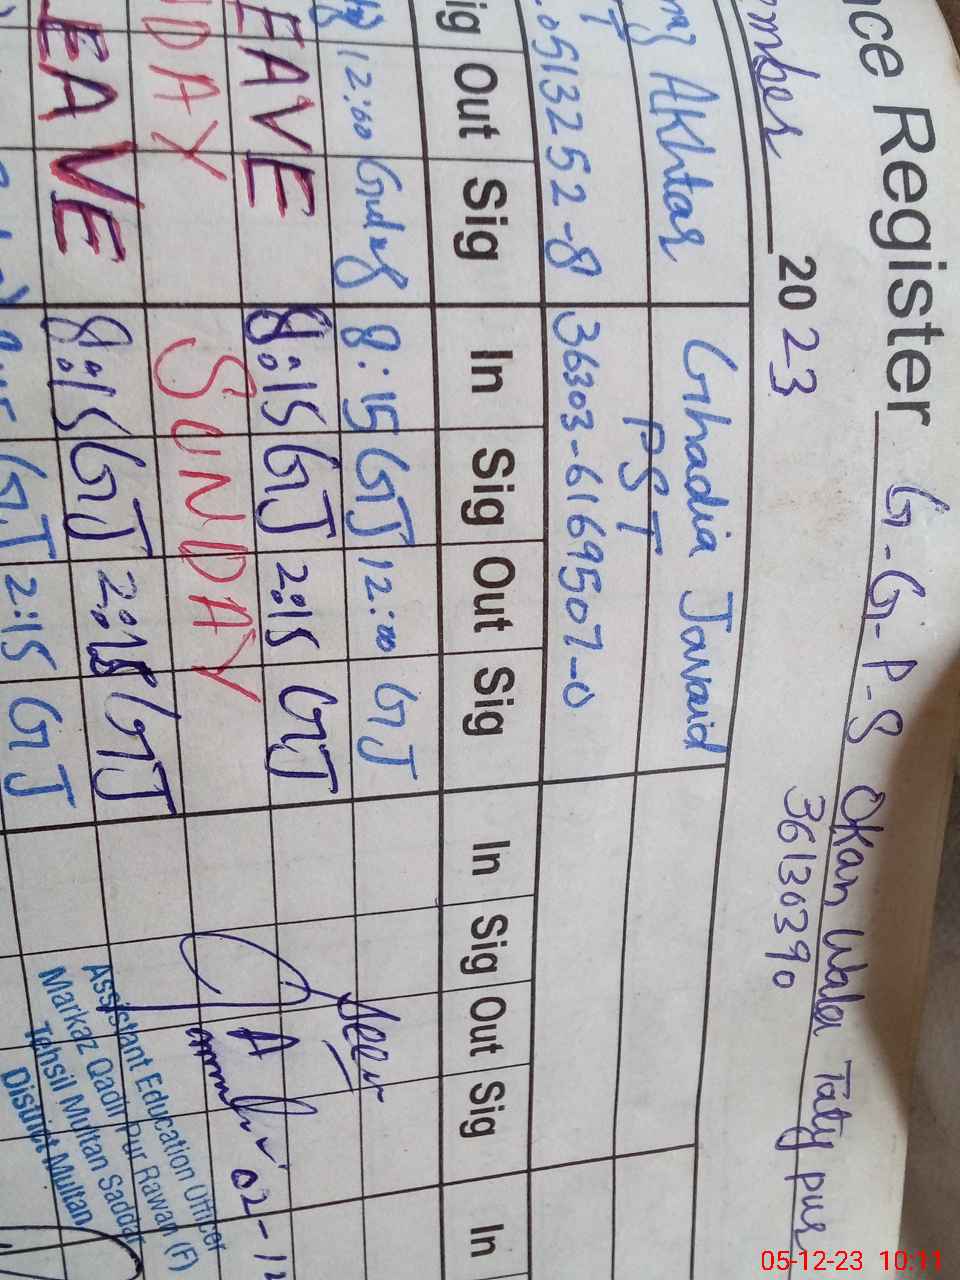 ce Register G-G-P-S Okan Wala Taty pur
mber 2023 36130390
Akhtar Ghadia Javaid
T PST
.05132 52-8 36303-6169507-0
ig Out Sig In Sig Out Sig In Sig Out Sig In
12:00 8:15 GJ 12:00 GJ
Seen
EAVE 8:15 GJ 2:15 GJ
A 02-12
DAY SUNDAY
EAVE 8:15 GJ 2:15 GJ
GJ 2:15 GJ
Assistant Education Officer
Markaz Qadir Pur Rawan (F)
Tehsil Multan Saddar
District Multan
05-12-23 10:11